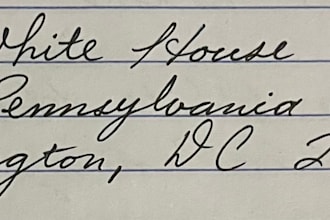 White House
Pennsylvania
gton, DC 2